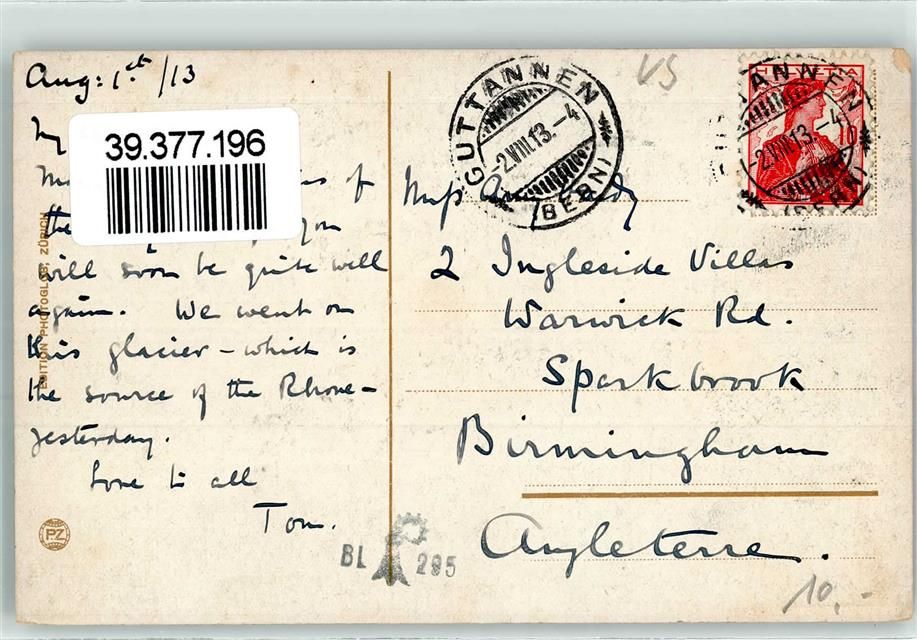 Aug: 1st /13
39.377.196
of
the you
will soon be quite well
again. We went on
this glacier – which is
the source of the Rhone –
yesterday.
Love to all
Tom.
EDITION PHOTOGLOB, ZÜRICH
PZ
BL 295
GUTTANNEN
-2.VIII.13.-4
(BERN)
VS
HELVETIA
10
TANNEN
-2.VIII.13.-4
(BERN)
Miss
2 Ingleside Villas
Warwick Rd.
Sparkbrook
Birmingham
Angleterre.
10,-